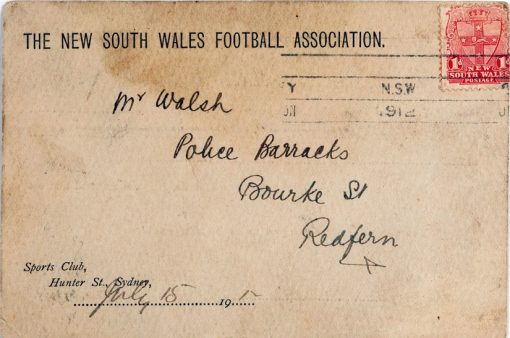 THE NEW SOUTH WALES FOOTBALL ASSOCIATION.
1d 1d
NEW
SOUTH WALES
POSTAGE
Y N.S.W
1912
Mr Walsh
Police Barracks
Bourke St
Redfern
Sports Club,
Hunter St., Sydney,
July 15 191